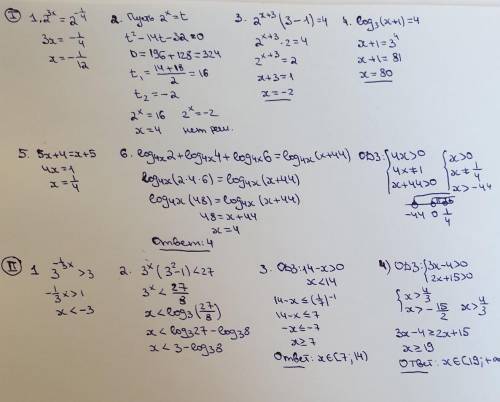 I 1. 2^{3x} = 2^{-1/4}
3x = -1/4
x = -1/12
2. Пусть 2^x = t
t² - 14t - 32 = 0
D = 196 + 128 = 324
t₁ = (14+18)/2 = 16
t₂ = -2
2^x = 16 2^x = -2
x = 4 нет реш.
3. 2^{x+3} (3-1) = 4
2^{x+3} · 2 = 4
2^{x+3} = 2
x+3 = 1
x = -2
4. log₃(x+1) = 4
x+1 = 3⁴
x+1 = 81
x = 80
5. 5x+4 = x+5
4x = 1
x = 1/4
6. log_{4x} 2 + log_{4x} 4 + log_{4x} 6 = log_{4x} (x+44)
log_{4x} (2·4·6) = log_{4x} (x+44)
log_{4x} (48) = log_{4x} (x+44)
48 = x+44
x = 4
Ответ: 4
ОДЗ: { 4x>0 { x>0
4x≠1 x≠1/4
x+44>0 x>-44
-44 0 1/4
II 1 3^{-1/3x} > 3
-1/3x > 1
x < -3
2. 3^x (3²-1) < 27
3^x < 27/8
x < log₃(27/8)
x < log₃27 - log₃8
x < 3 - log₃8
3. ОДЗ: 14-x>0
x<14
14-x ≤ (1/7)^{-1}
14-x ≤ 7
-x ≤ -7
x ≥ 7
Ответ: x∈[7; 14)
4) ОДЗ: { 3x-4>0
2x+15>0
{ x > 4/3
x > -15/2 x > 4/3
3x-4 ≥ 2x+15
x ≥ 19
Ответ: x∈[19; +∞